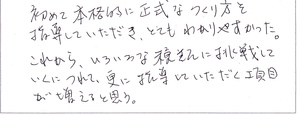 初めて本格的に正式なつくり方を
指導していただき、とてもわかりやすかった。
これから、いろいろな寝きんに挑戦して
いくにつれて、更に指導していただく項目
が増えると思う。